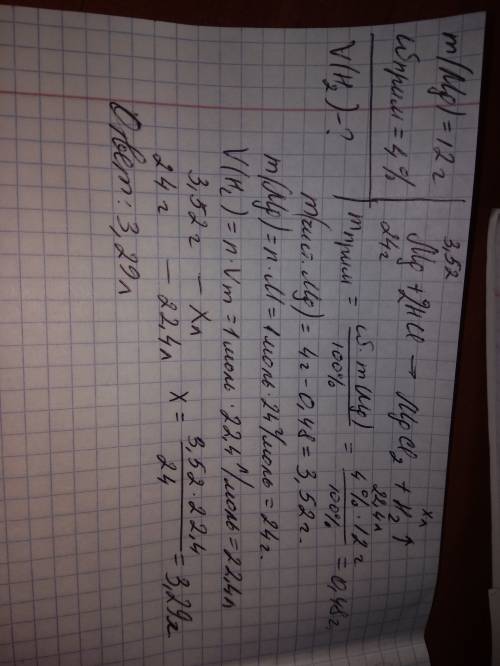 m(Mg) = 12 г
wприм = 4%
V(H₂) - ?
3,52 Xл
Mg + 2HCl → MgCl₂ + H₂↑
24г 22,4л
mприм = w·m(Mg) / 100% = 4%·12г / 100% = 0,48г.
m(чист. Mg) = 4г - 0,48 = 3,52г.
m(Mg) = n·M = 1моль·24г/моль = 24г.
V(H₂) = n·Vm = 1моль·22,4л/моль = 22,4л
3,52г — Xл
24г — 22,4л X = 3,52·22,4 / 24 = 3,29л
Ответ: 3,29л